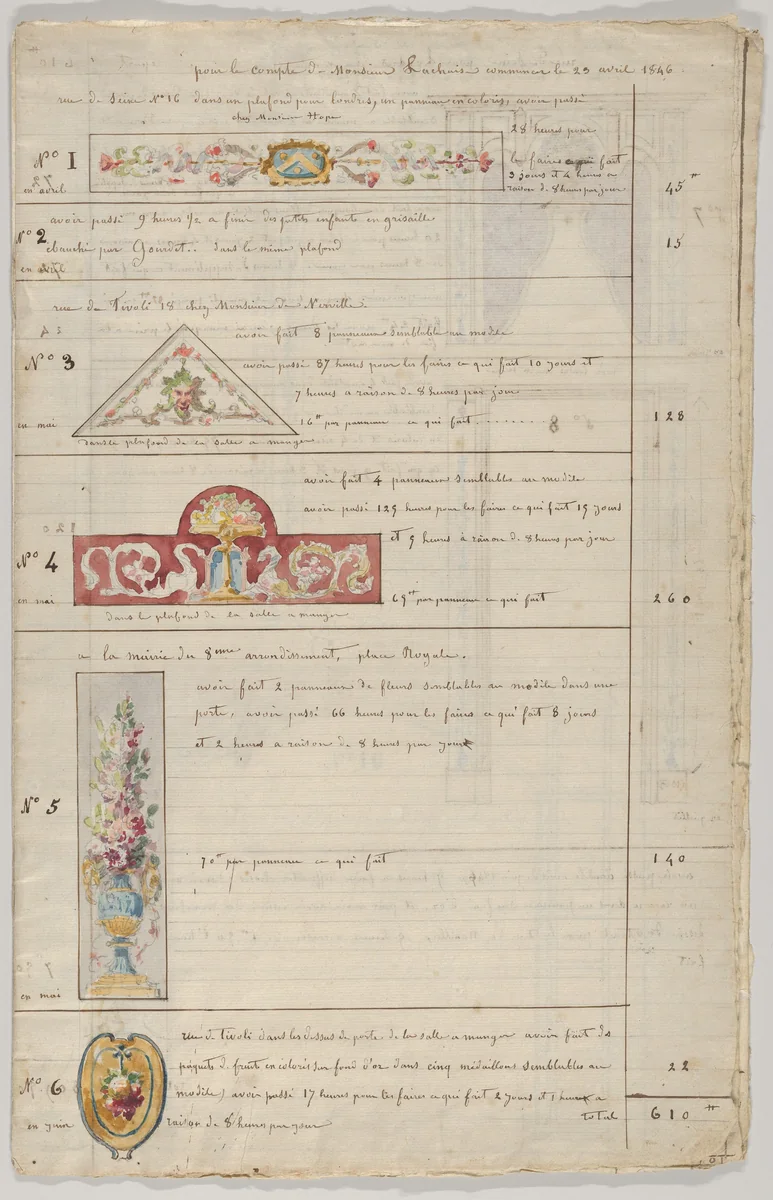 pour le compte de Monsieur Lachaise commencer le 23 avril 1846
rue de Seine No 16 dans un plafond pour londres, un panneau en coloris, avoir passé
chez Monsieur Hope
28 heures pour
les faires ce qui fait
3 jours et 4 heures a
raison de 8 heures par jour
No 1
en avril
45 #
avoir passé 9 heures 1/2 a finir des petits enfants en grisaille
No 2
ebauché par Gourdet.. dans le même plafond
en avril
15
rue de Tivoli 18 chez Monsieur de Nerville.
avoir fait 8 panneaux semblable au modele
No 3
avoir passé 87 heures pour les faires ce qui fait 10 jours et
7 heures a raison de 8 heures par jour
en mai
16 # par panneau ce qui fait ........
128
dans le plafond de la salle a manger
avoir fait 4 panneaux semblables au modèle
avoir passé 129 heures pour les faires ce qui fait 15 jours
et 9 heures à raison de 8 heures par jour
No 4
en mai
65 # par panneau ce qui fait
260
dans le plafond de la salle a manger
a la mairie du 8eme arrondissement, place Royale.
avoir fait 2 panneaux de fleurs semblables au modèle dans une
porte, avoir passé 66 heures pour les faires ce qui fait 8 jours
et 2 heures a raison de 8 heures par jour
No 5
70 # par panneau ce qui fait
140
en mai
rue de tivoli dans les dessus de porte de la salle a manger avoir fait des
paquets de fruits en coloris sur fond d'or dans cinq médaillons semblables au
22
No 6
modele) avoir passé 17 heures pour les faires ce qui fait 2 jours et 1 heure a
raison de 8 heures par jour
en juin
total
610 #